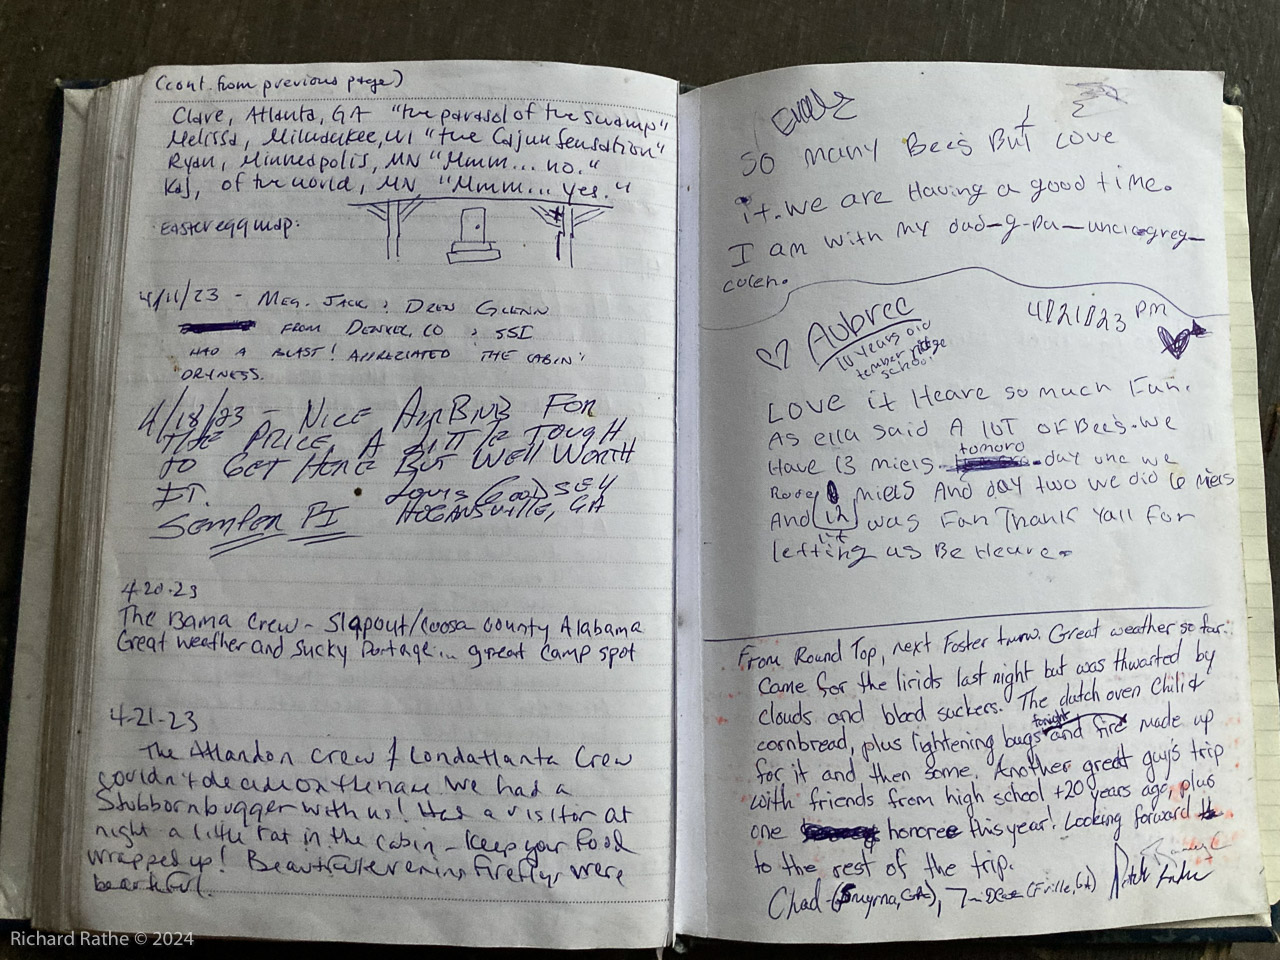 (cont. from previous page)
Clare, Atlanta, GA "the parasol of the swamp"
Melissa, Milwaukee, WI "the Cajun Sensation"
Ryan, Minneapolis, MN "Mmm... no."
Kaj, of the world, MN "Mmm... yes."
Easter egg map:
4/11/23 - Meg, Jack, Drew Glenn
from Denver, CO, SSI
had a blast! Appreciated the cabin's
dryness.
4/18/23 - Nice AirBnB for
the price, a little tough
to get here but well worth
it.
Louis
Hogansville, GA
Semper PI
4-20-23
The Bama Crew - Slapout/Coosa County Alabama
Great weather and sucky portage... great camp spot
4-21-23
The Atlandon Crew / Londatlanta Crew
couldn't decide on the name We had a
Stubborn bugger with us! Had a visitor at
night a little rat in the cabin - keep your food
wrapped up! Beautiful evening fireflys were
beautiful.
So many Bees But Love
it. we are Having a good time.
I am with my dad-g-pa-uncle greg-
colen.
Aubree
4/21/23 PM
10 years old
tember ridge
school
Love it Heare so much Fun.
As ella said A lOT OF Bees. We
Have 13 miels. tomoro day one we
Rode miels And day two we did 6 miels
And it was Fun Thank Yall For
letting us Be Heare.
From Round Top, next Foster tmrw. Great weather so far.
Came for the lirids last night but was thwarted by
clouds and blood suckers. The dutch oven Chili &
cornbread, plus lightening bugs tonight and fire made up
for it and then some. Another great guy's trip
with friends from high school +20 years ago, plus
one honoree this year! Looking forward
to the rest of the trip.
Chad - (Smyrna, GA), (F'ville, GA)
Richard Rathe © 2024